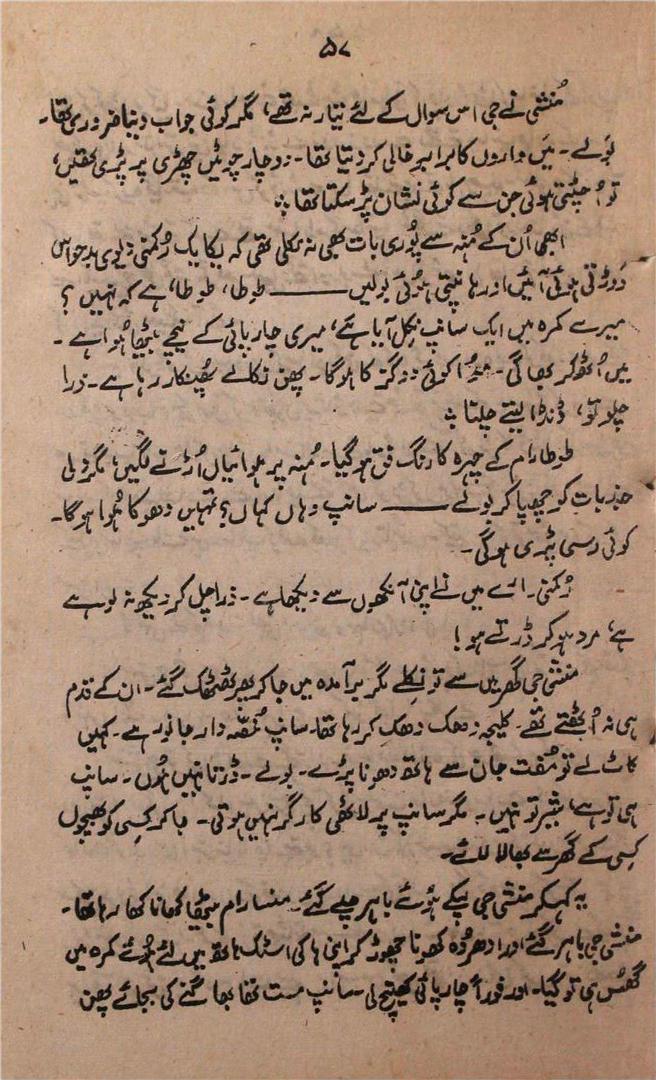 ۵۷
مُنشی نے جی اس سوال کے لئے تیار نہ تھے، مگر کوئی جواب دینا ضروری تھا۔
بولے۔ میَں واروں کا برابر خالی کر دیتا تھا۔ دو چار چوٹیں چھڑی پر پڑی تھیں،
تو اُچٹتی ہوئی جن سے کوئی نشان پڑ سکتا تھا ؞
ابھی اُن کے مُنہ سے پُوری بات بھی نہ نکلی تھی کہ یکایک رُکمنی دیوی بدحواس
دَوڑتی ہوئی آئیں اور ہانپتی ہوئی بولیں ——— طوطا، طوطا، ہے کہ نہیں ؟
میرے کمرہ میں ایک سانپ نکل آیا ہے، میری چارپائی کے نیچے بیٹھا ہُوا ہے۔
میں اُٹھ کر بھاگی۔ مُوا کوئی دو گز کا ہوگا۔ پھن نکالے پھنکار رہا ہے۔ ذرا
چلو تو، ڈنڈا لیتے چلنا ؞
طوطا رام کے چہرہ کا رنگ فق ہو گیا۔ مُنہ پر ہوائیاں اُڑنے لگیں، مگر دلی
جذبات کو چھپا کر بولے ——— سانپ وہاں کہاں؟ تمہیں دھوکا ہُوا ہوگا۔
کوئی رسی پڑی ہوگی۔
رُکمنی۔ ارے میں نے اپنی آنکھوں سے دیکھا ہے۔ ذرا چل کر دیکھ نہ لو۔ ہے
ہے، مرد ہو کر ڈرتے ہو!
منشی جی گھر میں سے تو نکلے مگر برآمدہ میں جا کر پھر ٹھٹھک گئے۔ ان کے قدم
ہی نہ اُٹھتے تھے۔ کلیجہ دھک دھک کر رہا تھا۔ سانپ غُصّہ دار جانور ہے۔ کہیں
کاٹ لے تو مُفت جان سے ہاتھ دھونا پڑے۔ بولے۔ ڈرتا نہیں ہُوں۔ سانپ
ہی تو ہے، شیر تو نہیں۔ مگر سانپ پر لاٹھی کارگر نہیں ہوتی۔ جا کر کسی کو بھیجوں
کسی کے گھر سے بھالا لائے۔
یہ کہہکر منشی جی لپکے ہُوئے باہر چلے گئے۔ منسا رام بیٹھا کھانا کھا رہا تھا۔
منشی جی باہر گئے اور ادھر وُہ کھانا چھوڑ کر اپنی ہاکی اسٹک ہاتھ میں لئے ہُوئے کمرہ میں
گھُس ہی تو گیا۔ اور فوراً چارپائی کھینچ لی۔ سانپ مست تھا بھاگنے کی بجائے پھن